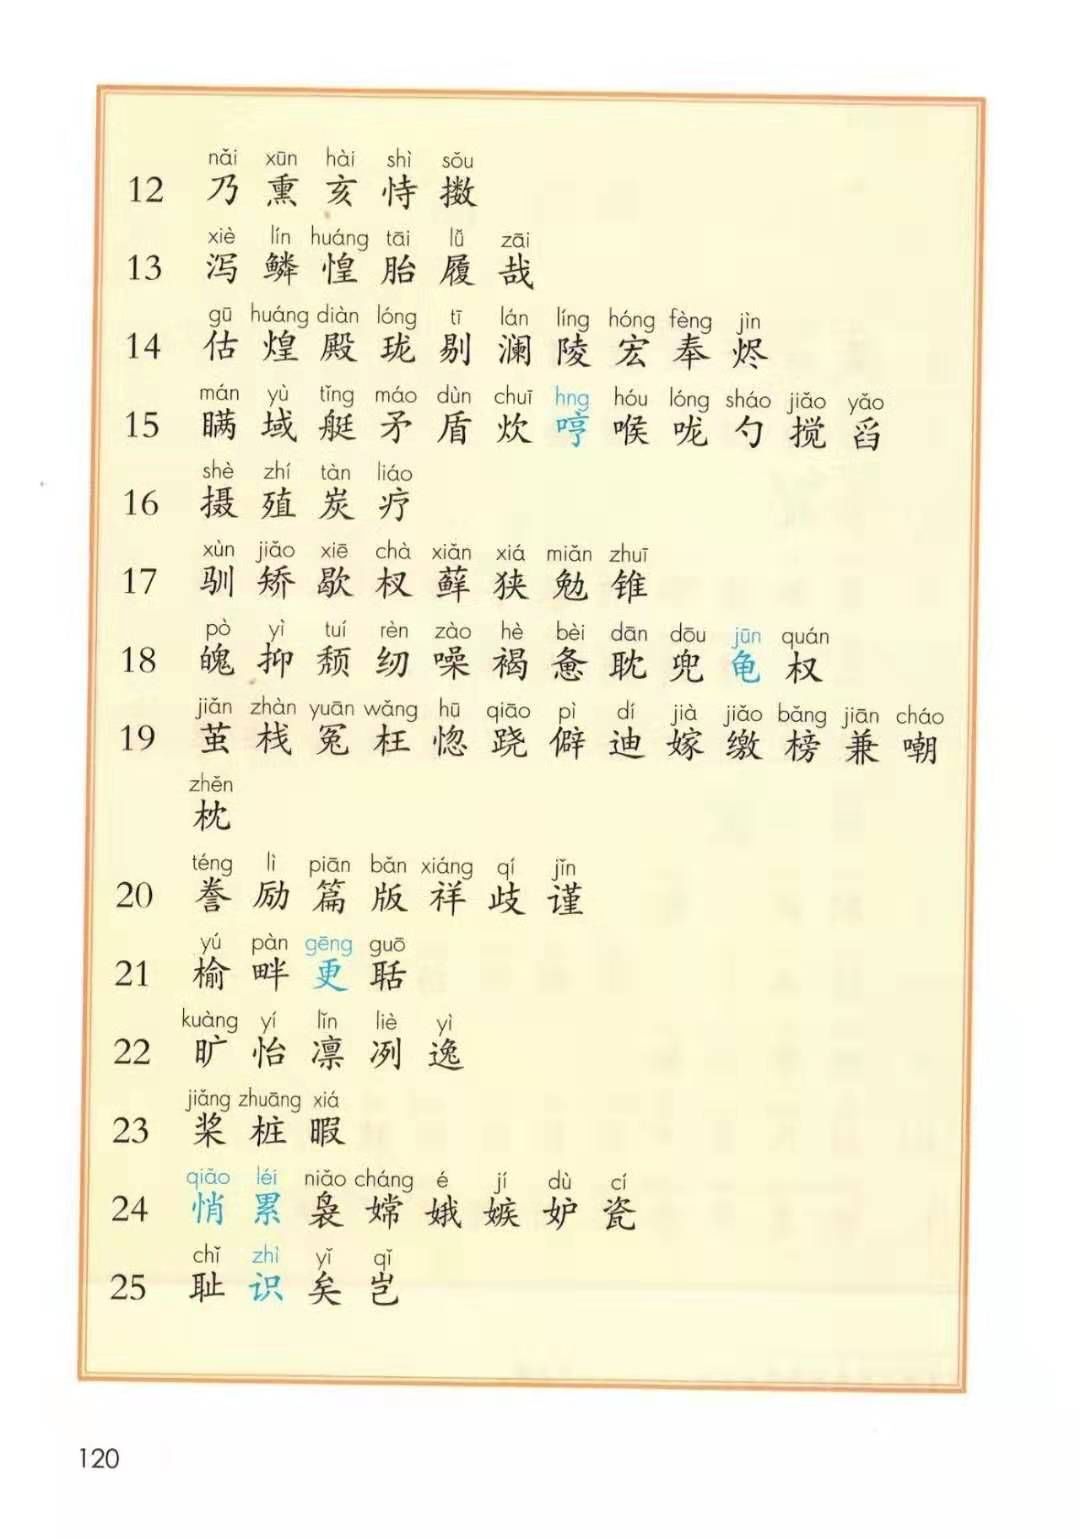 nǎi xūn hài shì sǒu
12 乃 熏 亥 恃 擞
xiè lín huáng tāi lǚ zāi
13 泻 鳞 惶 胎 履 哉
gū huáng diàn lóng tī lán líng hóng fèng jìn
14 估 煌 殿 珑 剔 澜 陵 宏 奉 烬
mán yù tǐng máo dùn chuī hng hóu lóng sháo jiǎo yǎo
15 瞒 域 艇 矛 盾 炊 哼 喉 咙 勺 搅 舀
shè zhí tàn liáo
16 摄 殖 炭 疗
xùn jiǎo xiē chà xiǎn xiá miǎn zhuī
17 驯 矫 歇 杈 藓 狭 勉 锥
pò yì tuí rèn zào hè bèi dān dōu jūn quán
18 魄 抑 颓 纫 噪 褐 惫 耽 兜 龟 权
jiǎn zhàn yuān wǎng hū qiāo pì dí jià jiǎo bǎng jiān cháo
19 茧 栈 冤 枉 惚 跷 僻 迪 嫁 缴 榜 兼 嘲
zhěn
枕
téng lì piān bǎn xiáng qí jǐn
20 誊 励 篇 版 祥 歧 谨
yú pàn gēng guō
21 榆 畔 更 聒
kuàng yí lǐn liè yì
22 旷 怡 凛 冽 逸
jiǎng zhuāng xiá
23 桨 桩 暇
qiǎo léi niǎo cháng é jí dù cí
24 悄 累 袅 嫦 娥 嫉 妒 瓷
chǐ zhì yǐ qǐ
25 耻 识 矣 岂
120